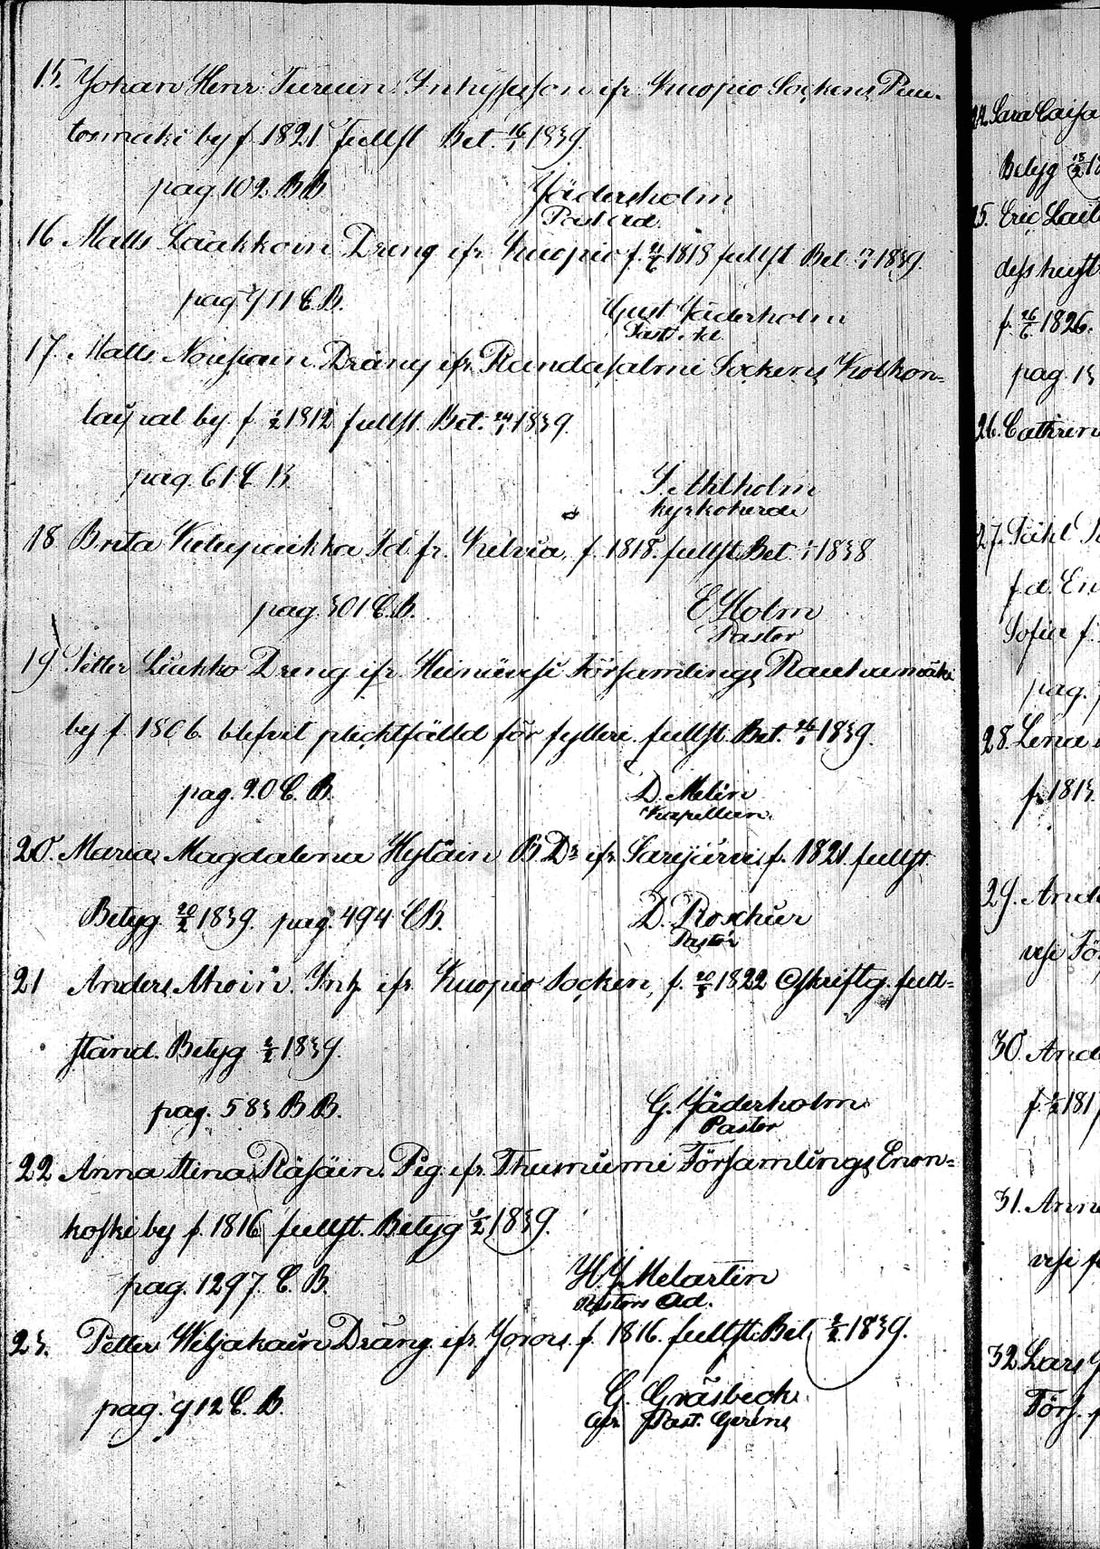 15. Johan Henr. Turuin Inhysesson ifr. Kuopio Sockens Puu-
tosmäki by f. 1821 fullst Bet. 16/1 1839.
pag. 102. BB
Jäderholm
Past ad.
16 Matts Laakkoin Dreng ifr. Kuopio f. 1815 fullst Bet. 1839.
pag. 711 C.B.
Gust Jäderholm
Past. ad
17. Matts Nousiain Dräng ifr. Randasalmi Sockens Kolkon-
taipal by f. 1812 fullst Bet. 24/1 1839.
pag. 61 C B
J. Ahlholm
kyrkoherde
18 Brita Id. fr. Kelviå, f. 1818. fullst Bet. 1838
pag. 301 C.B.
E Holm
Pastor
19 Petter Liukko Dreng ifr. Heinävesi Församlings Rauhamäki
by f. 1806 blefvit plichtfälld för fylleri. fullst. Bet. 26/1 1839.
pag. 90 C. B.
D. Melin
Kapellan.
20. Maria Magdalena Hytöin B.Dr ifr. Sarijärvi f. 1821 fullst
Betyg 20/2 1839. pag. 494 CB.
D. Roschier
Pastor
21 Anders Ahoin. Inh. ifr Kuopio Socken, f. 20/3 1822 Oskriftg. full-
ständ. Betyg 1839.
pag. 583 B B.
G. Jäderholm
Pastor
22 Anna Stina Räsäin. Pig. ifr. Församlings Enon-
koski by f. 1816 fullst. Betyg 1839.
pag. 1297. C. B.
H J Melartin
Pastors Ad.
23. Petter Wiljakain Dräng ifr. Jorois f. 1816. fullst. Bet. 1839.
pag. 712 C. B
G. Gräsbeck
Past. Gerens
Sara Caisa
Betyg
25. Eric
dess hust
f. 26/6 1826.
pag. 13
26. Cathrin
27.
f d. En
Sofia f.
pag.
28. Lena
f. 1813.
29. And
vesi Fö
30. And
f. 181
31. Ann
vesi f
32 Lars
Förs.